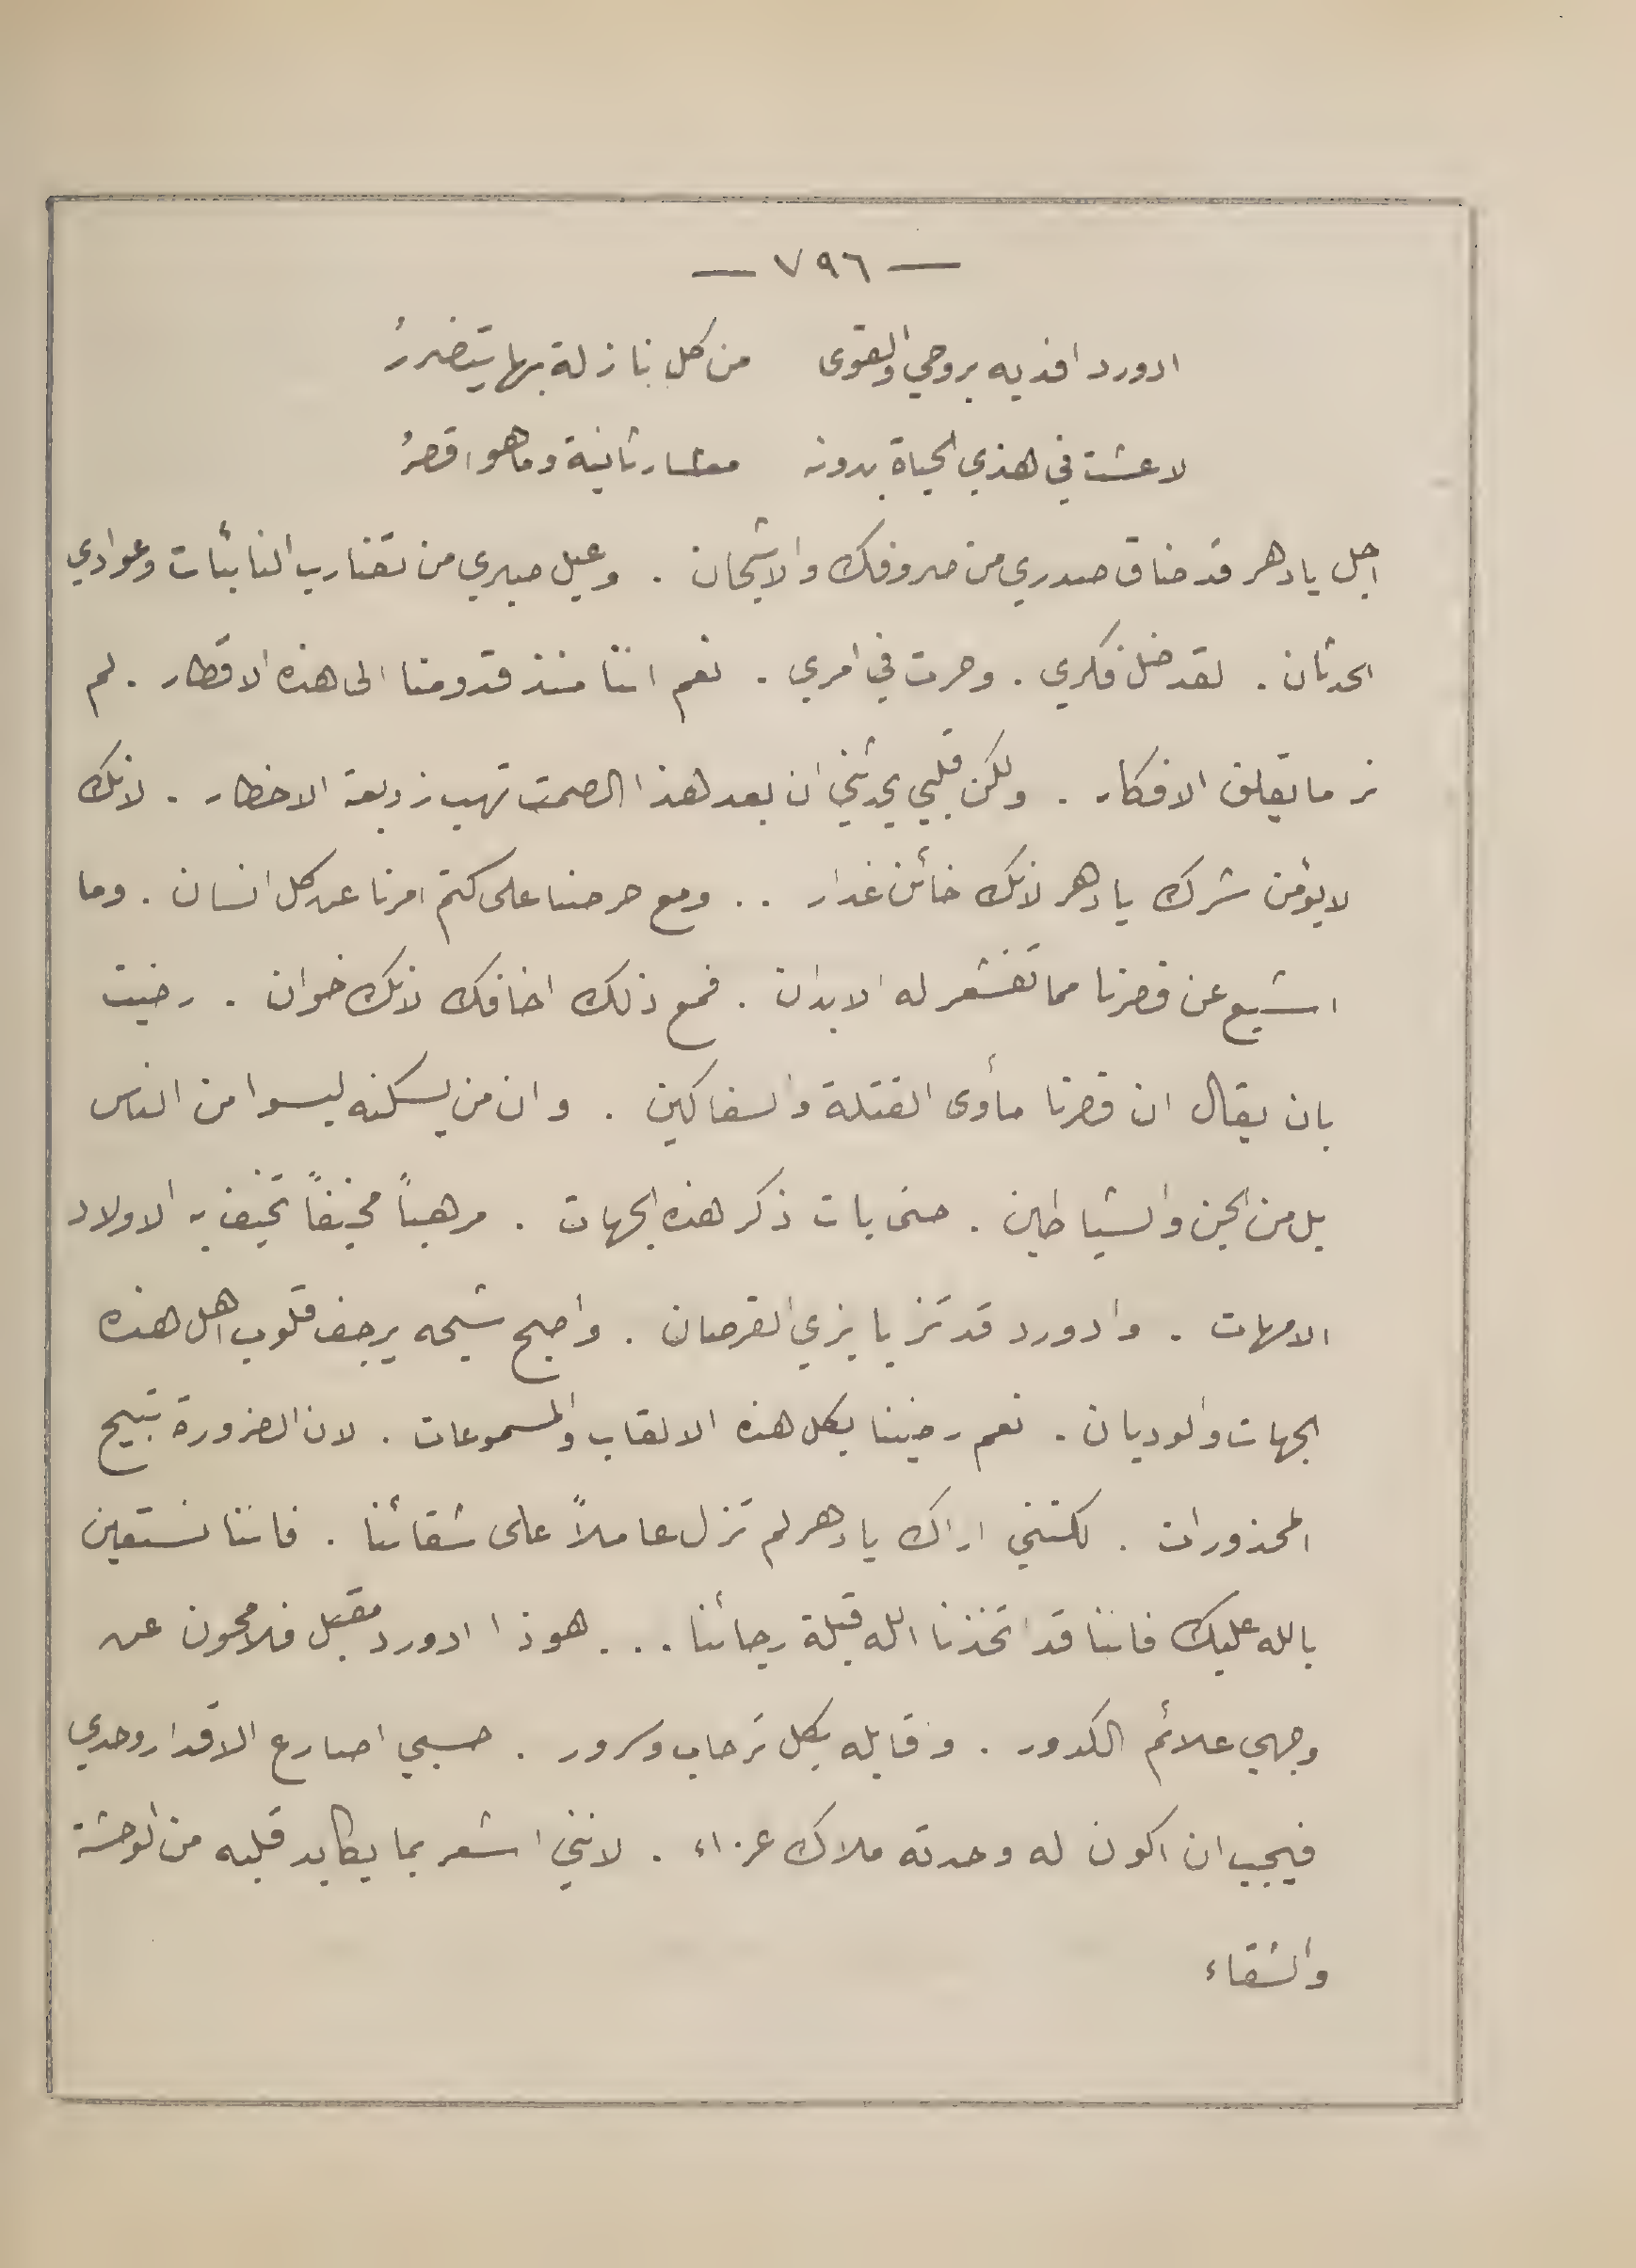 — ٧٩٦ —
ادورد افديه بروحي والقوى من كل نازلة بها يتضررُ
لا عشت في هذي الحياة بدونه معشار ثانية وما هو اقصرُ
اجل يا دهر قد ضاق صدري من صروفك والاشجان . وعيل صبري من تضارب النائبات وعوادي
الحدثان . لقد ضل فكري . وحرت في امري . نعم اننا منذ قدومنا الى هذه الاقطار . لم
نر ما يقلق الافكار . ولكن قلبي يحدثني ان بعد هذا الصمت تهب زوبعة الاخطار . لانك
لا يؤمن شرك يا دهر لانك خائن غدار .. ومع حرصنا على كتم امرنا عن كل انسان . وما
اشيع عن قصرنا مما تقشعر له الابدان . فمع ذلك اخافك لانك خوان . رضيت
بان يقال ان قصرنا مأوى القتلة والسفاكين . وان من يسكنه ليسوا من الناس
بل من الجن والشياطين . حتى بات ذكر هذه الجهات . مرهباً مخيفاً تخيف به الاولاد
الامهات . وادورد قد تزيا بزي القرصان . واصبح شبحه يرجف قلوب اهل هذه
الجهات والوديان . نعم رضينا بكل هذه الالقاب والمسموعات . لان الضرورة تبيح
المحذورات . لكنني اراك يا دهر لم تزل عاملاً على شقائنا . فاننا نستعين
بالله عليك فاننا قد اتخذنا الله قبلة رجائنا ... هوذا ادورد مقبل فلامحون عن
وجهي علائم الكدور . وقابله بكل ترحاب وسرور . حسبي اصارع الاقدار وحدي
فيجب ان اكون له وحدته ملاك عزاء . لانني اشعر بما يكابد قلبه من الوحشة
والشقاء